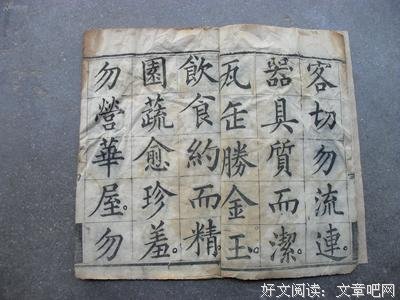 客切勿流連。
器具質而潔。
瓦缶勝金玉。
飲食約而精。
園蔬愈珍羞。
勿營華屋。勿
好文阅读：文章吧网